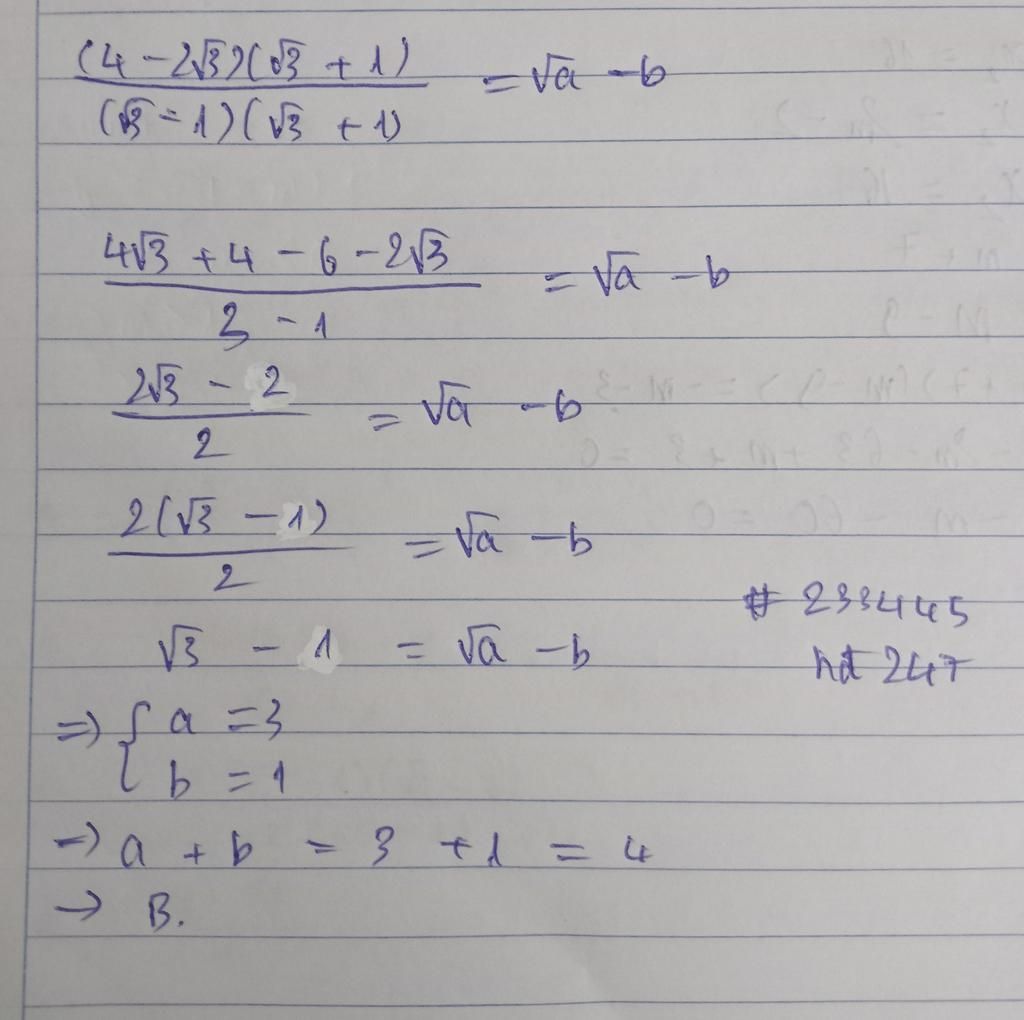 (4 - 2√3)(√3 + 1)
(√3 - 1)(√3 + 1) = √a - b
4√3 + 4 - 6 - 2√3
3 - 1 = √a - b
2√3 - 2
2 = √a - b
2(√3 - 1)
2 = √a - b
√3 - 1 = √a - b
# 233445
hd 247
=> { a = 3
b = 1
=> a + b = 3 + 1 = 4
→ B.